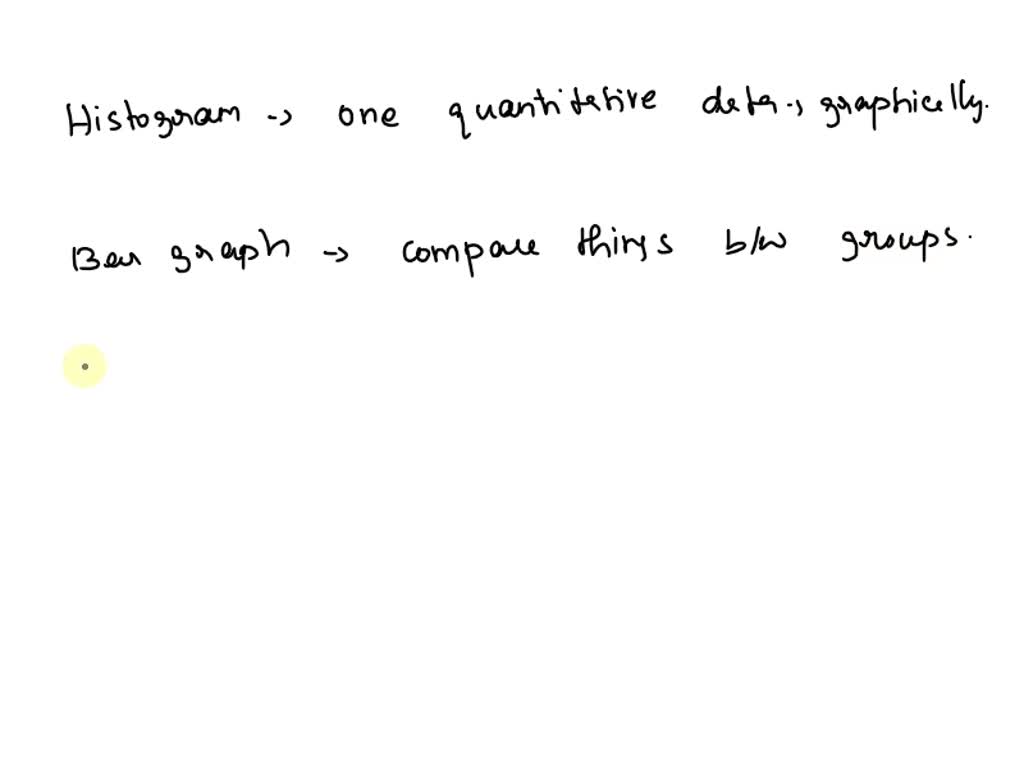 Histogram → one quantitative data → graphically.
Bar graph → compare things b/w groups.